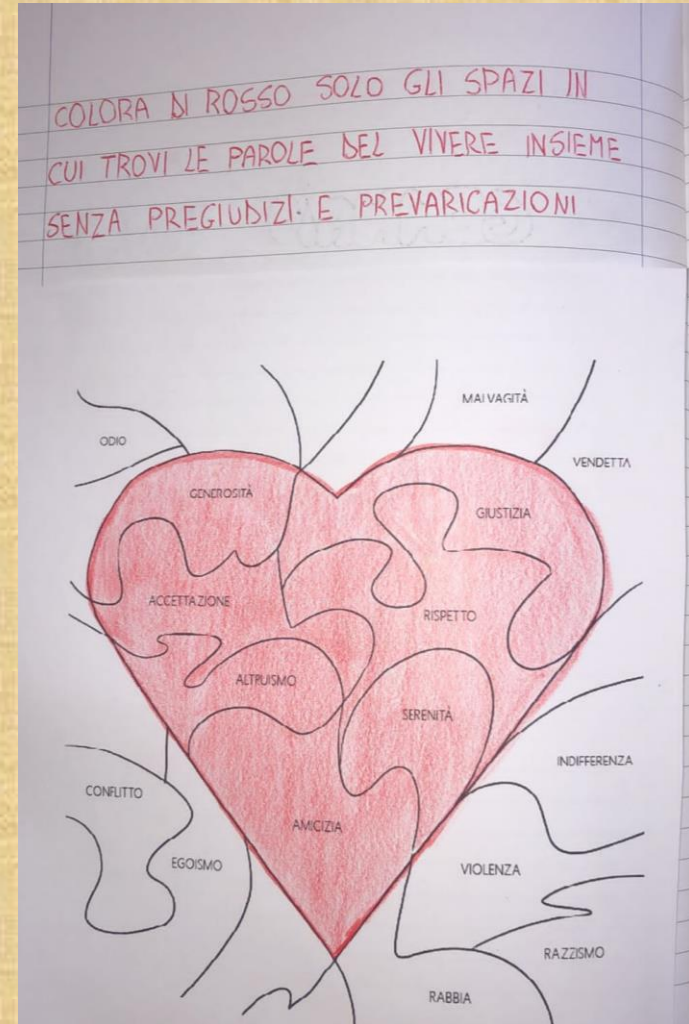 COLORA DI ROSSO SOLO GLI SPAZI IN
CUI TROVI LE PAROLE DEL VIVERE INSIEME
SENZA PREGIUDIZI E PREVARICAZIONI
MALVAGITÀ
ODIO
VENDETTA
GENEROSITÀ
GIUSTIZIA
ACCETTAZIONE
RISPETTO
ALTRUISMO
SERENITÀ
INDIFFERENZA
CONFLITTO
AMICIZIA
EGOISMO
VIOLENZA
RAZZISMO
RABBIA